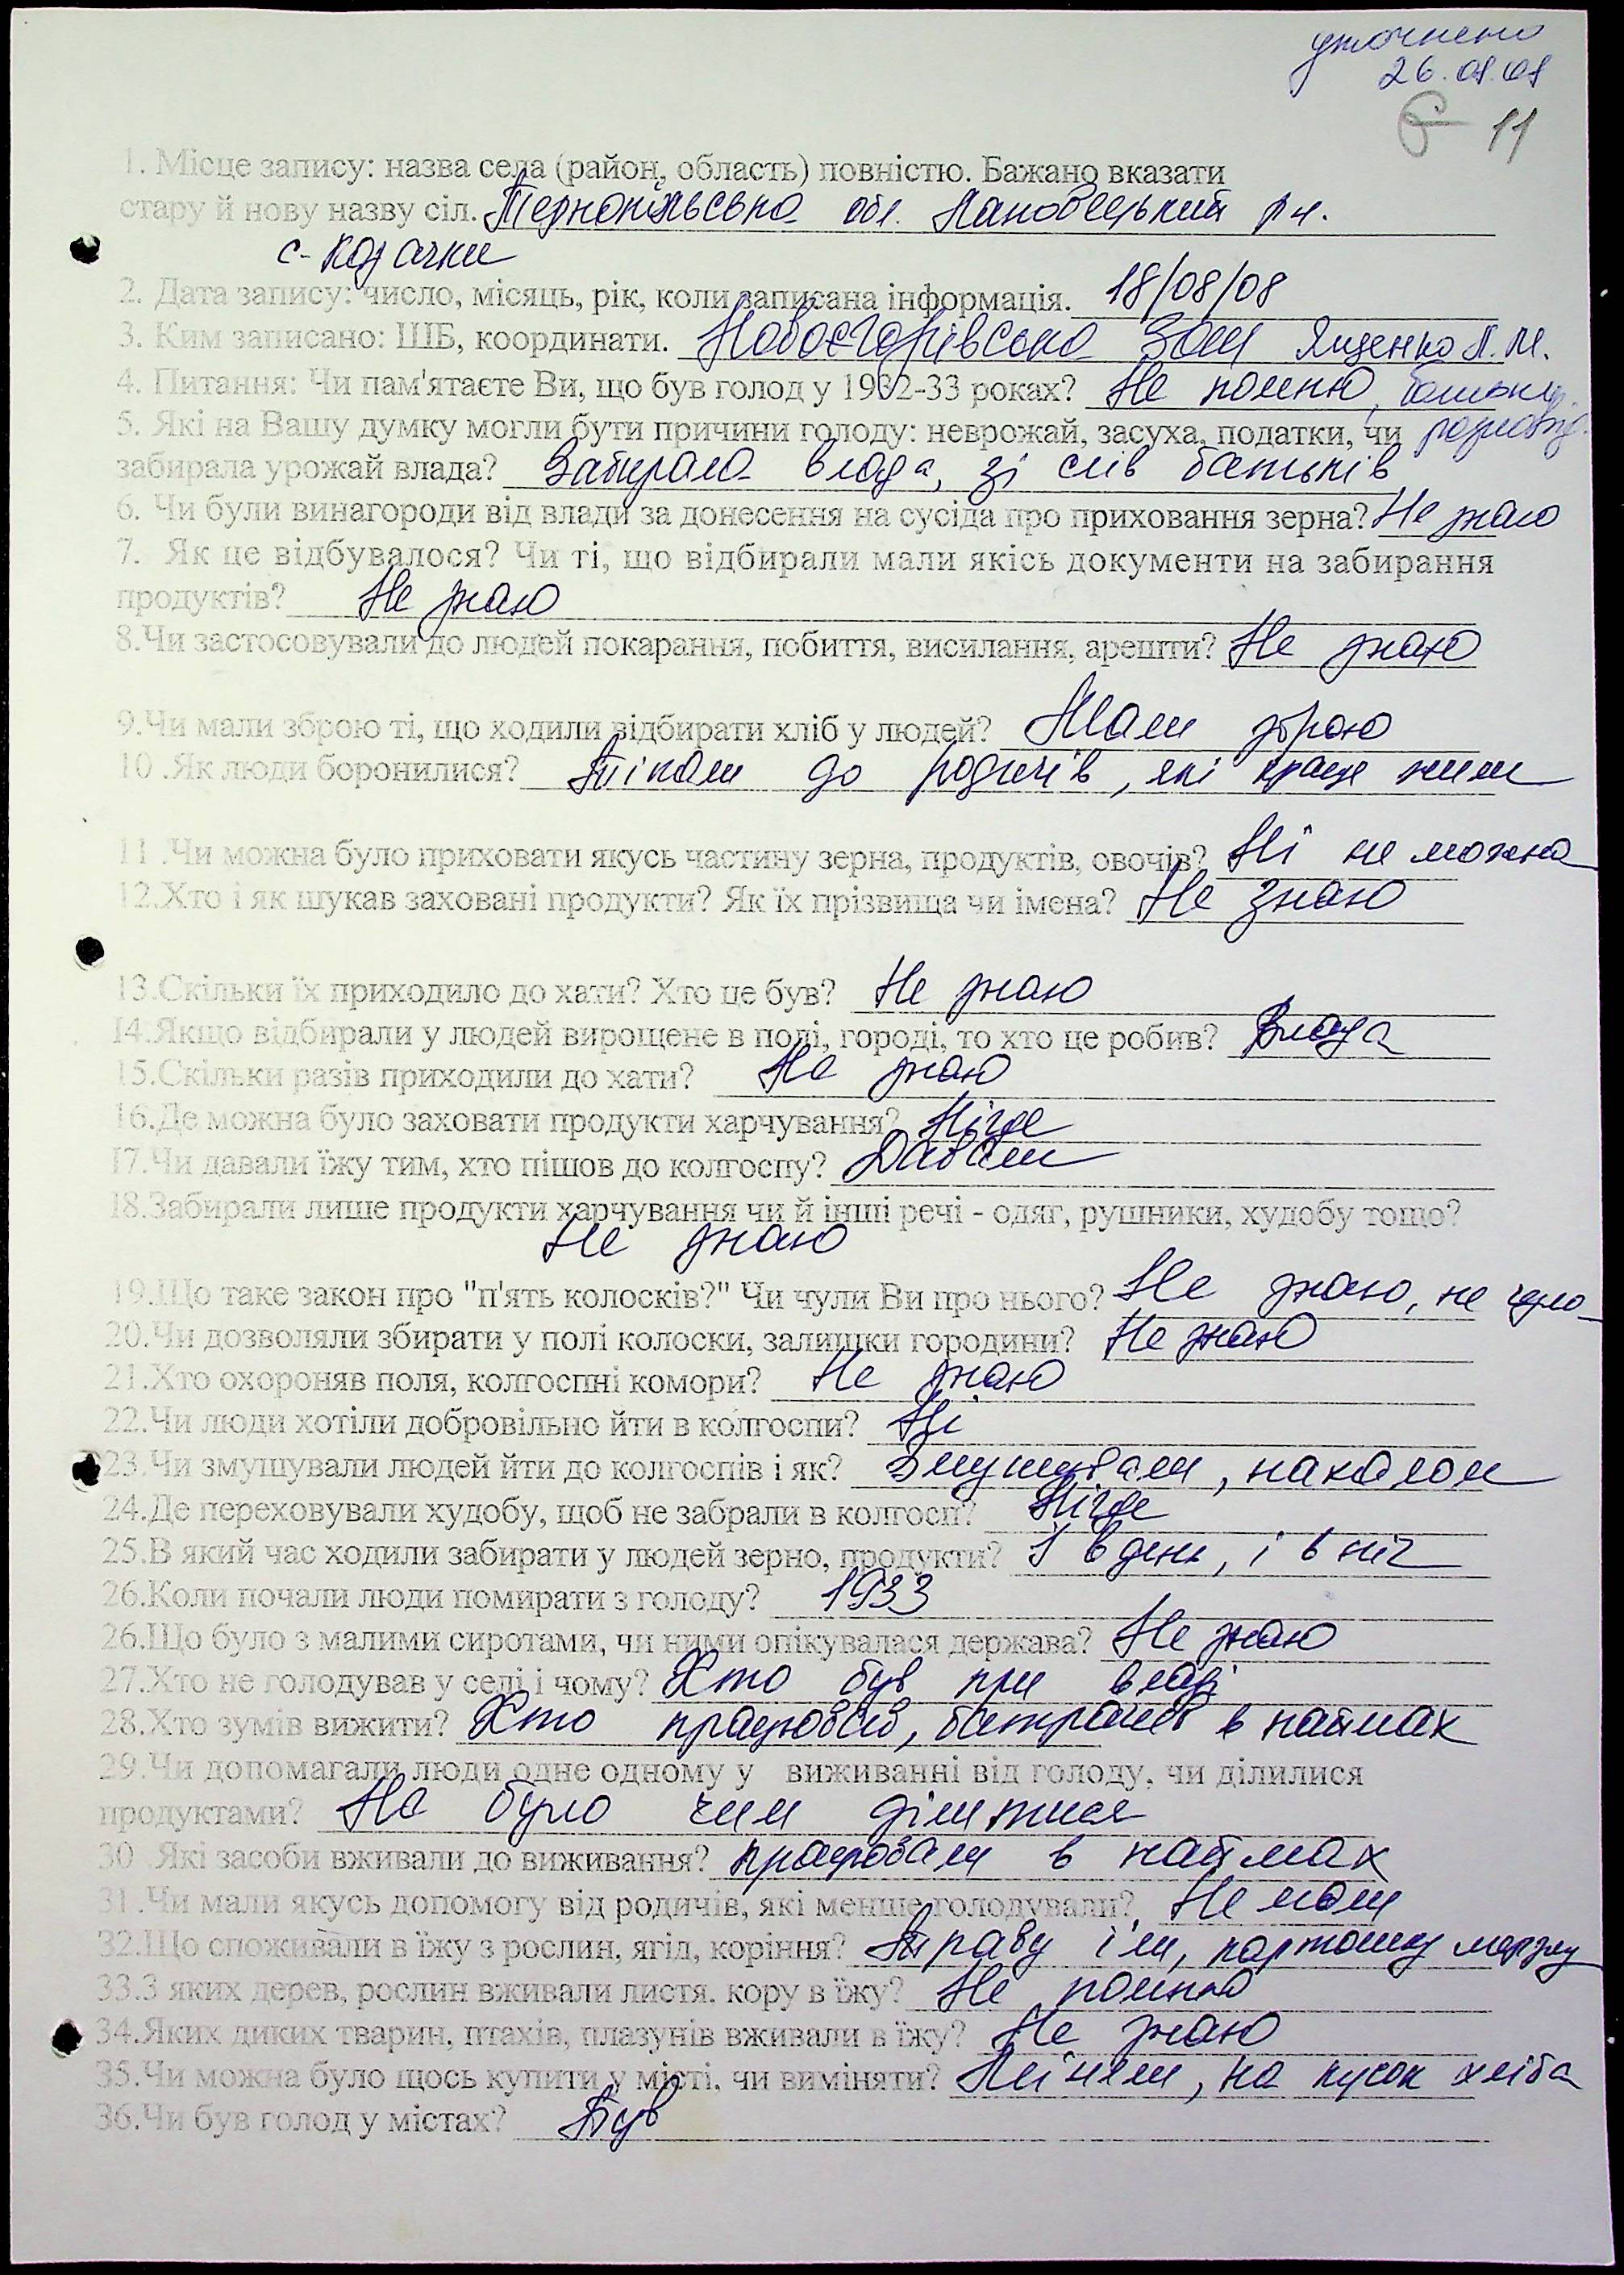 уточнено
26.01.09
11
1. Місце запису: назва села (район, область) повністю. Бажано вказати
стару й нову назву сіл. Тернопільська обл. Лановецький р-н.
с. Козачки
2. Дата запису: число, місяць, рік, коли записана інформація. 18/08/08
3. Ким записано: ПІБ, координати. Новоєгорівська ЗОШ Ященко Л. М.
4. Питання: Чи пам'ятаєте Ви, що був голод у 1932-33 роках? Не помню, батьки
5. Які на Вашу думку могли бути причини голоду: неврожай, засуха, податки, чи розповід.
забирала урожай влада? Забирала влада, зі слів батьків
6. Чи були винагороди від влади за донесення на сусіда про приховання зерна? Не знаю
7. Як це відбувалося? Чи ті, що відбирали мали якісь документи на забирання
продуктів? Не знаю
8.Чи застосовували до людей покарання, побиття, висилання, арешти? Не знаю
9.Чи мали зброю ті, що ходили відбирати хліб у людей? Мали зброю
10 .Як люди боронилися? Тікали до родичів, які краще жили
11 .Чи можна було приховати якусь частину зерна, продуктів, овочів? Ні не можна
12.Хто і як шукав заховані продукти? Як їх прізвища чи імена? Не знаю
13.Скільки їх приходило до хати? Хто це був? Не знаю
14.Якщо відбирали у людей вирощене в полі, городі, то хто це робив? Влада
15.Скільки разів приходили до хати? Не знаю
16.Де можна було заховати продукти харчування? Нігде
17.Чи давали їжу тим, хто пішов до колгоспу? Давали
18.Забирали лише продукти харчування чи й інші речі - одяг, рушники, худобу тощо?
Не знаю
19.Що таке закон про "п'ять колосків?" Чи чули Ви про нього? Не знаю, не чула
20.Чи дозволяли збирати у полі колоски, залишки городини? Не знаю
21.Хто охороняв поля, колгоспні комори? Не знаю
22.Чи люди хотіли добровільно йти в колгоспи? Ні
23.Чи змушували людей йти до колгоспів і як? Змушували, наказом
24.Де переховували худобу, щоб не забрали в колгосп? Нігде
25.В який час ходили забирати у людей зерно, продукти? І вдень, і вніч
26.Коли почали люди помирати з голоду? 1933
26.Що було з малими сиротами, чи ними опікувалася держава? Не знаю
27.Хто не голодував у селі і чому? Хто був при владі
28.Хто зумів вижити? Хто працював, батрачив в наймах
29.Чи допомагали люди одне одному у виживанні від голоду, чи ділилися
продуктами? Не було чим ділитися
30 .Які засоби вживали до виживання? працювали в наймах
31.Чи мали якусь допомогу від родичів, які менше голодували? Не мали
32.Що споживали в їжу з рослин, ягід, коріння? Траву їли, картошку мерзлу
33.З яких дерев, рослин вживали листя, кору в їжу? Не помню
34.Яких диких тварин, птахів, плазунів вживали в їжу? Не знаю
35.Чи можна було щось купити у місті, чи виміняти? Міняли, на кусок хліба
36.Чи був голод у містах? Був